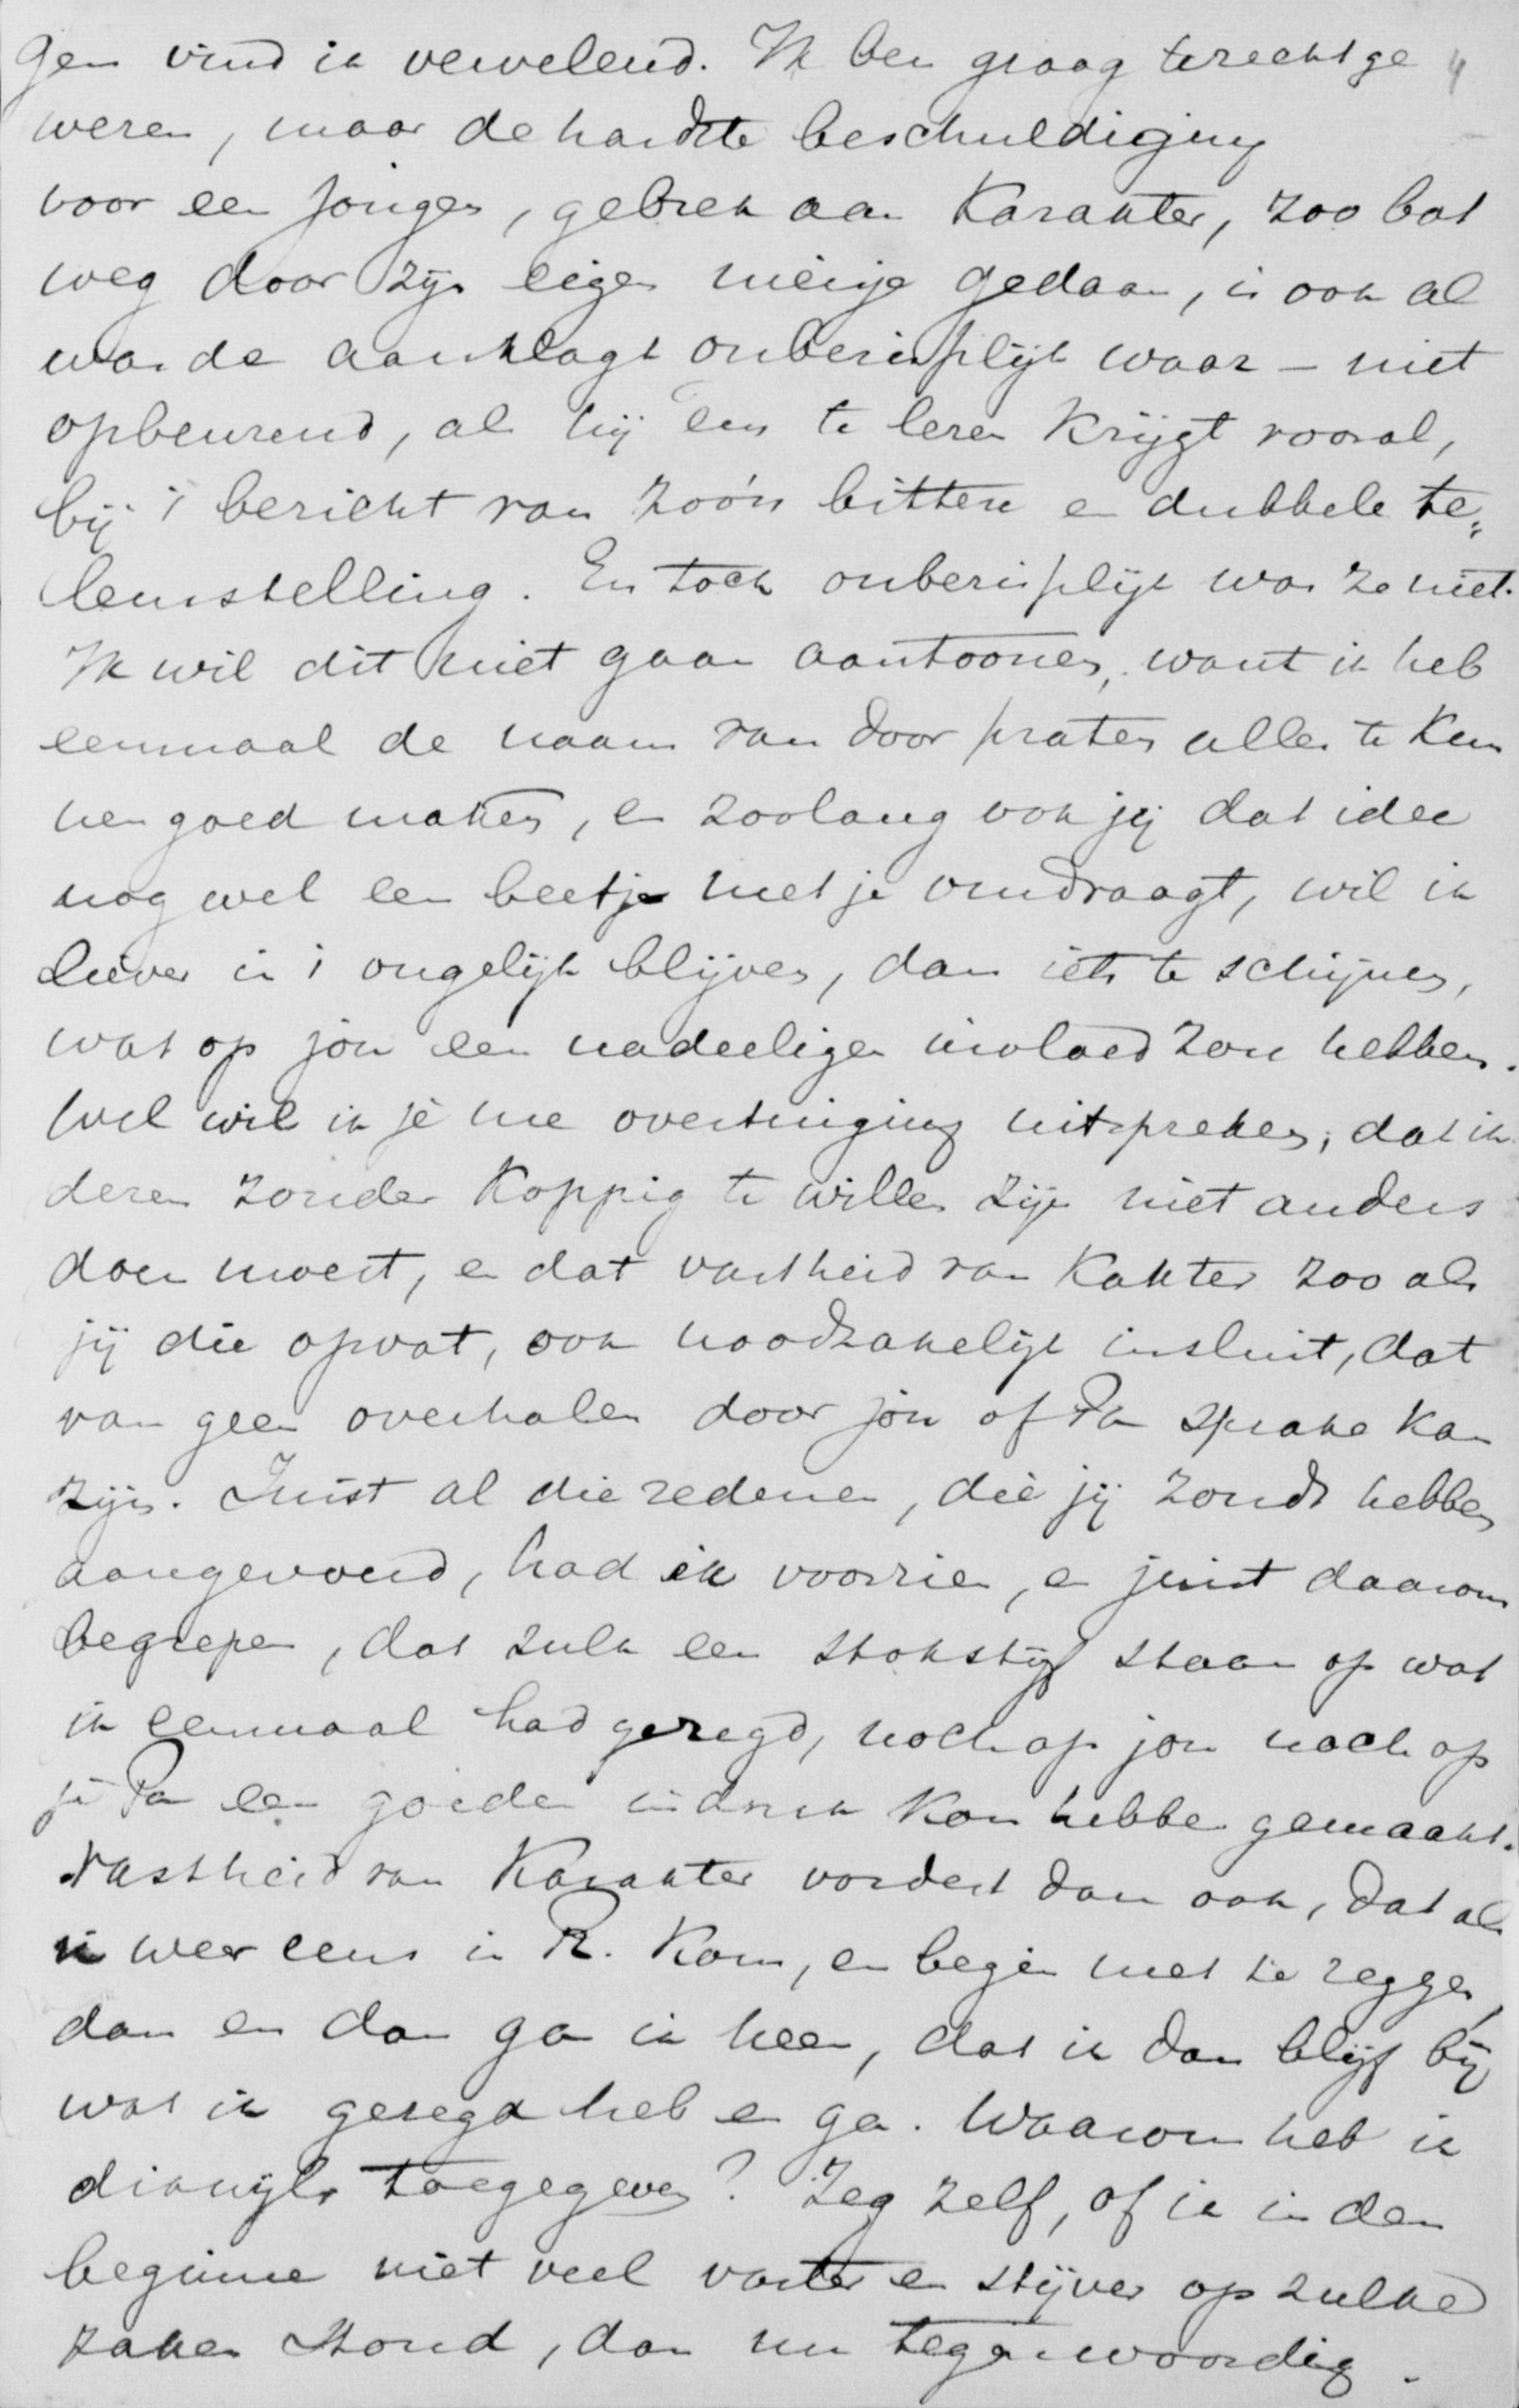 gen vind ik vervelend. Ik ben graag terechtge 4
wezen, maar de hardste beschuldiging
voor een jongen, gebrek aan Karakter, zoo bot
weg door zijn eigen meisje gedaan, is ook al
was de aanklagt onberispelijk waar – niet
opbeurend, als hij een te lezen krijgt vooral,
bij 't bericht van zóó'n bittere en dubbele te„
leurstelling. En toch onberisplijk was ze niet.
Ik wil dit niet gaan aantoonen, want ik heb
eenmaal de naam van door praten alles te kun
nen goed maken, en zoolang ook jij dat idee
nog wel een beetje met je omdraagt, wil ik
liever in 't ongelijk blijven, dan iets te schijnen,
wat op jou een nadeeligen invloed zou hebben.
Wel wil ik je me overtuiging uitspreken, dat ik
dezen zonder Koppig te willen zijn niet anders
doen moest, en dat vastheid van Kakter zoo als
jij die opvat, ook noodzakelijk insluit, dat
van geen overhalen door jou of Pa sprake kan
zijn. Juist al die redenen, die jij zoudt hebben
aangevoerd, had ik voorzien, en juist daarom
begrepen, dat zulk een stokstijf staan op wat
ik eenmaal had gezegd, noch op jou noch op
je Pa een goeden indruk kon hebben gemaakt.
Vastheid van Karakter vordert dan ook, dat als
ik weer eens in R. kom, en begin met te zeggen,
dan en dan ga ik heen, dat ik dan blijf bij
wat ik gezegd heb en ga. Waarom heb ik
dikwijls toegegeven? Zeg zelf, of ik in den
beginne niet veel vaster en stijver op zulke
zaken stond, dan nu tegenwoordig.